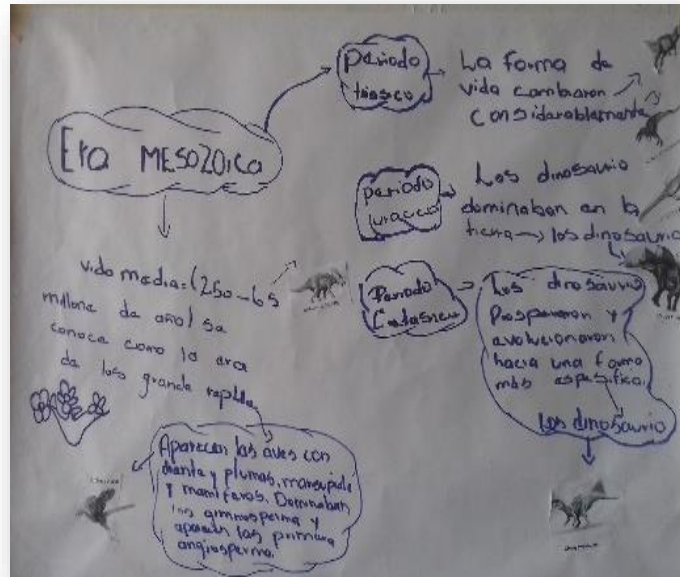 Era MESOZOICA
Periodo
triasico
La forma de
vida cambiaron
considerablemente
periodo
jurasico
Los dinosaurio
dominaban en la
tierra → los dinosaurio
Periodo
Los dinosaurio
Prosperaron y
evolucionaron
hacia una forma
más espesifica
Los dinosaurio
vida media=(250-65
millone de año) sa
conoce como la era
de los grande
Aparecen las aves con
diente y plumas, marsupiale
y mamiferos. Dominaban
las gimnosperma y
aparecen las primera
angiosperma.